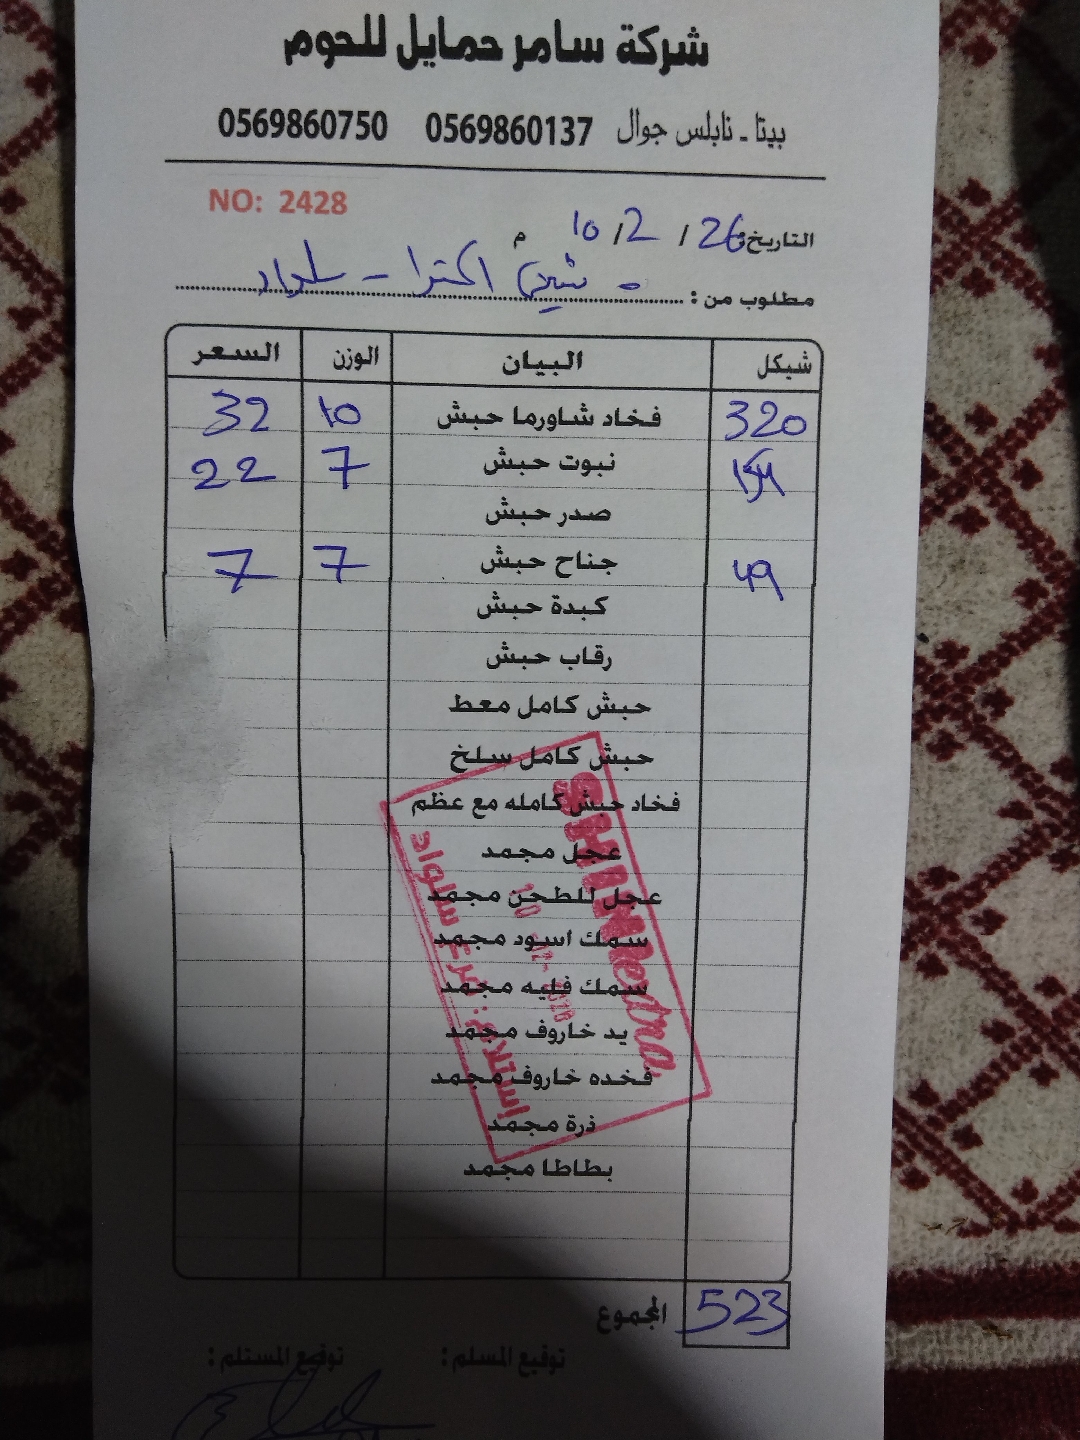 شركة سامر حمايل للحوم
بيتا - نابلس جوال 0569860137 0569860750
NO: 2428
التاريخ: 26 / 2 / 10 م
مطلوب من : شيني اكسترا - سلواد
شيكل البيان الوزن السعر
320 فخاد شاورما حبش 10 32
154 نبوت حبش 7 22
صدر حبش
49 جناح حبش 7 7
كبدة حبش
رقاب حبش
حبش كامل معط
حبش كامل سلخ
فخاد حبش كامله مع عظم
عجل مجمد
عجل للطحن مجمد
سمك اسود مجمد
سمك فليه مجمد
يد خاروف مجمد
فخده خاروف مجمد
ذرة مجمد
بطاطا مجمد
المجموع 523
توقيع المسلم : توقيع المستلم :
extra
10 -02- 2026
استلام: فرع سلواد